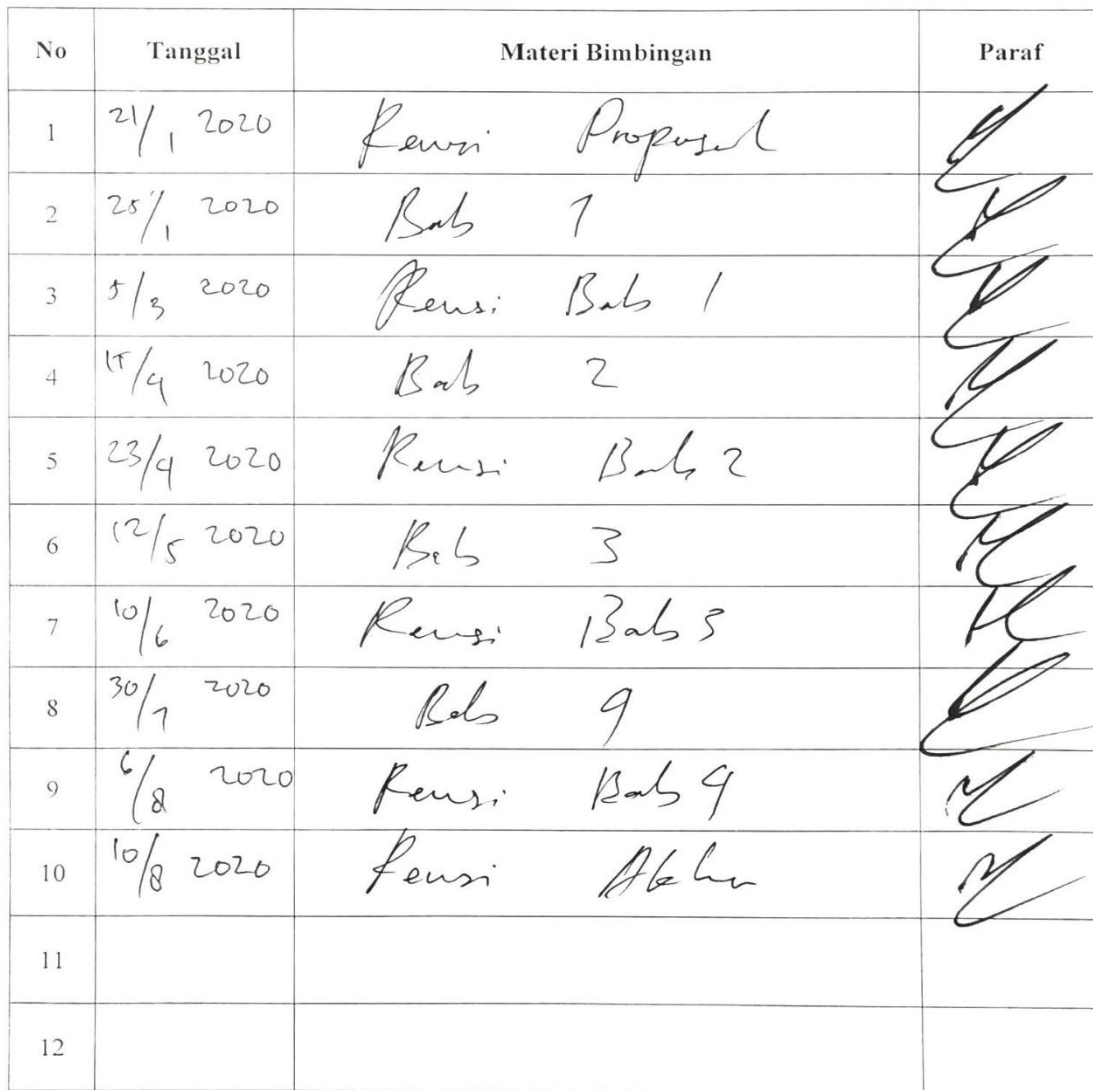 No Tanggal Materi Bimbingan Paraf
1 21/1 2020 Revisi Proposal
2 28/1 2020 Bab 1
3 5/3 2020 Revisi Bab 1
4 15/4 2020 Bab 2
5 23/4 2020 Revisi Bab 2
6 12/5 2020 Bab 3
7 10/6 2020 Revisi Bab 3
8 30/7 2020 Bab 4
9 6/8 2020 Revisi Bab 4
10 10/8 2020 Revisi Akhir
11
12